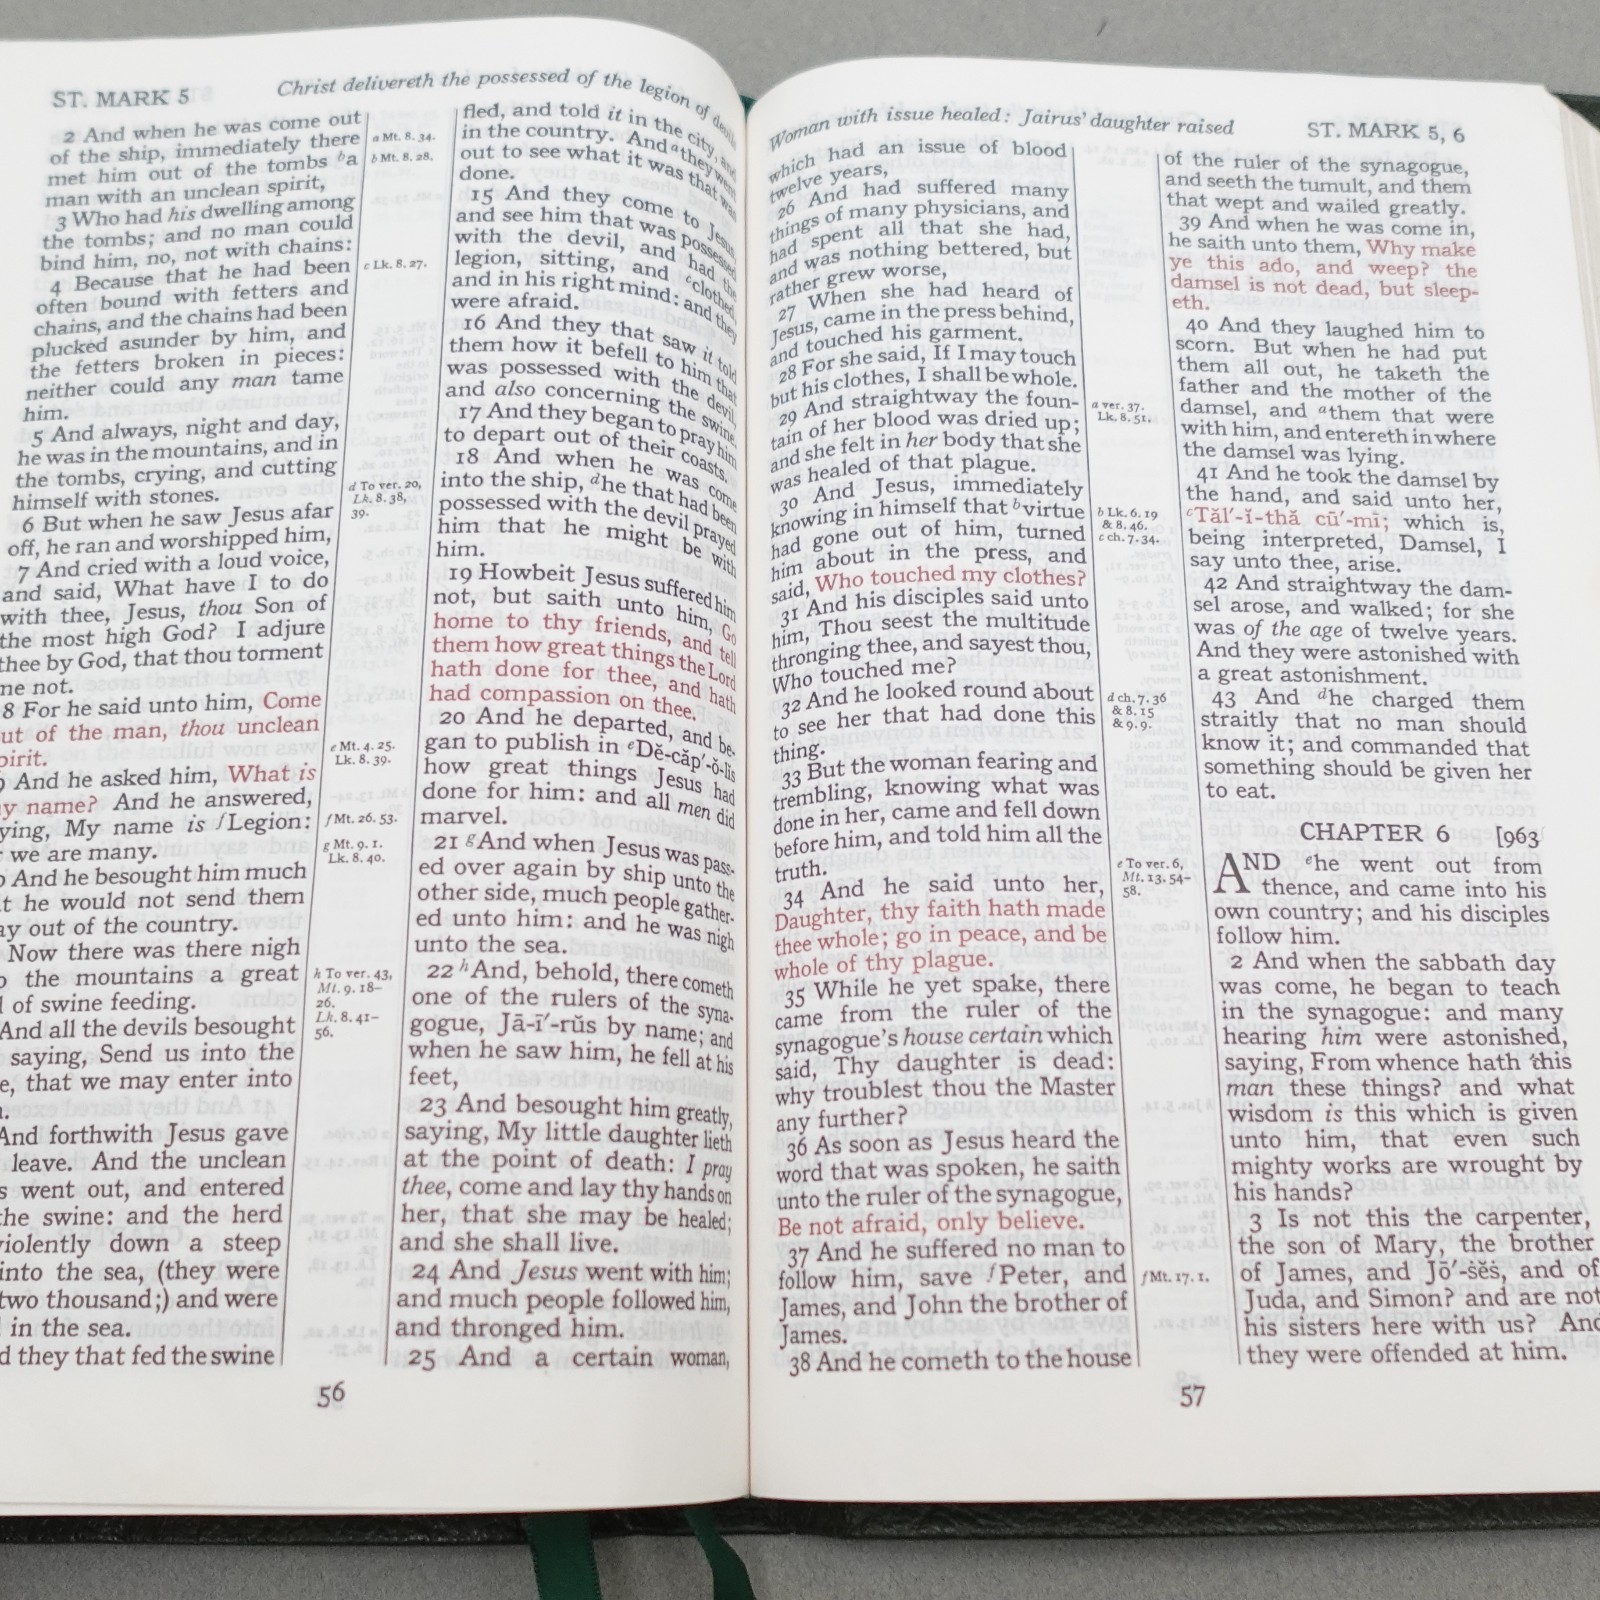 ST. MARK 5
Christ delivereth the possessed of the legion of devils
2 And when he was come out
of the ship, immediately there
met him out of the tombs ᵇa
man with an unclean spirit,
3 Who had his dwelling among
the tombs; and no man could
bind him, no, not with chains:
4 Because that he had been
often bound with fetters and
chains, and the chains had been
plucked asunder by him, and
the fetters broken in pieces:
neither could any man tame
him.
5 And always, night and day,
he was in the mountains, and in
the tombs, crying, and cutting
himself with stones.
6 But when he saw Jesus afar
off, he ran and worshipped him,
7 And cried with a loud voice,
and said, What have I to do
with thee, Jesus, thou Son of
the most high God? I adjure
thee by God, that thou torment
me not.
8 For he said unto him, Come
ut of the man, thou unclean
pirit.
9 And he asked him, What is
y name? And he answered,
ying, My name is ᶠLegion:
we are many.
And he besought him much
t he would not send them
ay out of the country.
Now there was there nigh
the mountains a great
of swine feeding.
And all the devils besought
saying, Send us into the
e, that we may enter into
And forthwith Jesus gave
leave. And the unclean
s went out, and entered
the swine: and the herd
violently down a steep
into the sea, (they were
two thousand;) and were
in the sea.
d they that fed the swine
a Mt. 8. 34.
b Mt. 8. 28.
c Lk. 8. 27.
d To ver. 20,
Lk. 8. 38,
39.
e Mt. 4. 25.
Lk. 8. 39.
f Mt. 26. 53.
g Mt. 9. 1.
Lk. 8. 40.
h To ver. 43,
Mt. 9. 18–
26.
Lk. 8. 41–
56.
fled, and told it in the city, and
in the country. And ᵃthey went
out to see what it was that was
done.
15 And they come to Jesus,
and see him that was possessed
with the devil, and had the
legion, sitting, and ᶜclothed,
and in his right mind: and they
were afraid.
16 And they that saw it told
them how it befell to him that
was possessed with the devil,
and also concerning the swine.
17 And they began to pray him
to depart out of their coasts.
18 And when he was come
into the ship, ᵈhe that had been
possessed with the devil prayed
him that he might be with
him.
19 Howbeit Jesus suffered him
not, but saith unto him, Go
home to thy friends, and tell
them how great things the Lord
hath done for thee, and hath
had compassion on thee.
20 And he departed, and be-
gan to publish in ᵉDĕ-căp′-ŏ-lis
how great things Jesus had
done for him: and all men did
marvel.
21 ᵍAnd when Jesus was pass-
ed over again by ship unto the
other side, much people gather-
ed unto him: and he was nigh
unto the sea.
22 ʰAnd, behold, there cometh
one of the rulers of the syna-
gogue, Jā-ī′-rŭs by name; and
when he saw him, he fell at his
feet,
23 And besought him greatly,
saying, My little daughter lieth
at the point of death: I pray
thee, come and lay thy hands on
her, that she may be healed;
and she shall live.
24 And Jesus went with him;
and much people followed him,
and thronged him.
25 And a certain woman,
56
Woman with issue healed: Jairus' daughter raised
ST. MARK 5, 6
which had an issue of blood
twelve years,
26 And had suffered many
things of many physicians, and
had spent all that she had,
and was nothing bettered, but
rather grew worse,
27 When she had heard of
Jesus, came in the press behind,
and touched his garment.
28 For she said, If I may touch
but his clothes, I shall be whole.
29 And straightway the foun-
tain of her blood was dried up;
and she felt in her body that she
was healed of that plague.
30 And Jesus, immediately
knowing in himself that ᵇvirtue
had gone out of him, turned
him about in the press, and
said, Who touched my clothes?
31 And his disciples said unto
him, Thou seest the multitude
thronging thee, and sayest thou,
Who touched me?
32 And he looked round about
to see her that had done this
thing.
33 But the woman fearing and
trembling, knowing what was
done in her, came and fell down
before him, and told him all the
truth.
34 And he said unto her,
Daughter, thy faith hath made
thee whole; go in peace, and be
whole of thy plague.
35 While he yet spake, there
came from the ruler of the
synagogue's house certain which
said, Thy daughter is dead:
why troublest thou the Master
any further?
36 As soon as Jesus heard the
word that was spoken, he saith
unto the ruler of the synagogue,
Be not afraid, only believe.
37 And he suffered no man to
follow him, save ᶠPeter, and
James, and John the brother of
James.
38 And he cometh to the house
a ver. 37.
Lk. 8. 51.
b Lk. 6. 19
& 8. 46.
c ch. 7. 34.
d ch. 7. 36
& 8. 15
& 9. 9.
e To ver. 6,
Mt. 13. 54–
58.
f Mt. 17. 1.
of the ruler of the synagogue,
and seeth the tumult, and them
that wept and wailed greatly.
39 And when he was come in,
he saith unto them, Why make
ye this ado, and weep? the
damsel is not dead, but sleep-
eth.
40 And they laughed him to
scorn. But when he had put
them all out, he taketh the
father and the mother of the
damsel, and ᵃthem that were
with him, and entereth in where
the damsel was lying.
41 And he took the damsel by
the hand, and said unto her,
ᶜTăl′-ĭ-thă cū′-mī; which is,
being interpreted, Damsel, I
say unto thee, arise.
42 And straightway the dam-
sel arose, and walked; for she
was of the age of twelve years.
And they were astonished with
a great astonishment.
43 And ᵈhe charged them
straitly that no man should
know it; and commanded that
something should be given her
to eat.
CHAPTER 6 [963
AND ᵉhe went out from
thence, and came into his
own country; and his disciples
follow him.
2 And when the sabbath day
was come, he began to teach
in the synagogue: and many
hearing him were astonished,
saying, From whence hath this
man these things? and what
wisdom is this which is given
unto him, that even such
mighty works are wrought by
his hands?
3 Is not this the carpenter,
the son of Mary, the brother
of James, and Jō′-ṡĕṡ, and of
Juda, and Simon? and are not
his sisters here with us? And
they were offended at him.
57